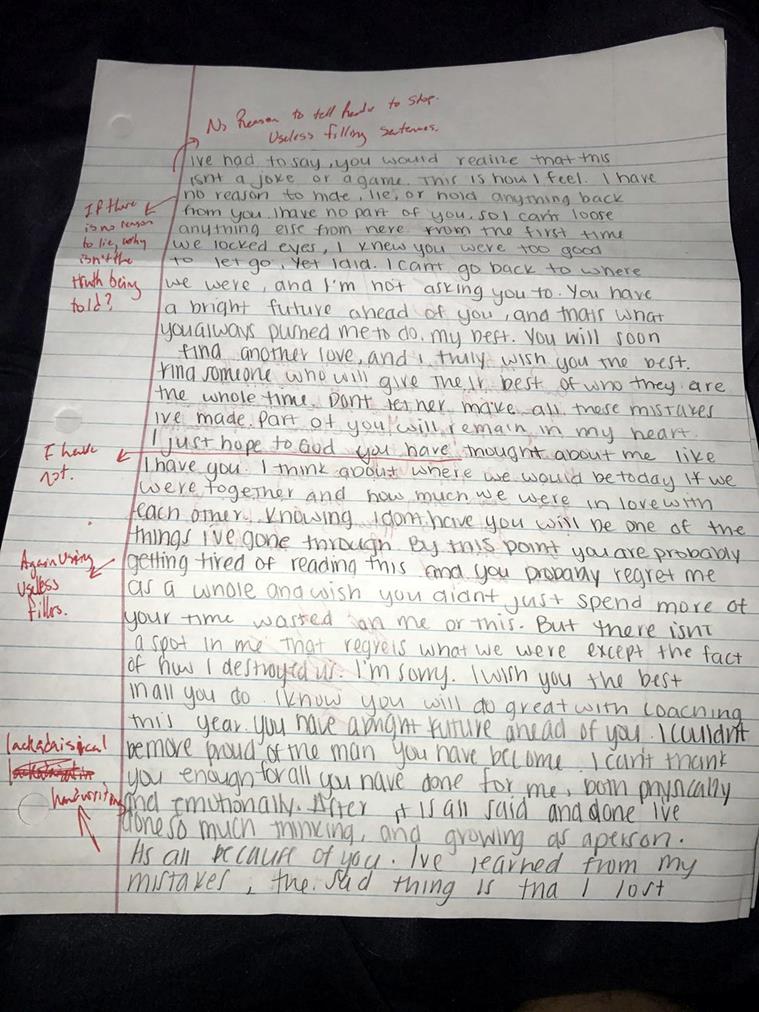 No Reason to tell reader to stop.
Useless filling sentences.
Ive had to say, you would realize that this
isnt a joke or a game. This is how I feel. I have
no reason to hide, lie, or hold anything back
from you. I have no part of you, so I cant loose
anything else from here. From the first time
we locked eyes, I knew you were too good
to let go. Yet I did. I cant go back to where
we were, and I'm not asking you to. You have
a bright future ahead of you, and thats what
you always pushed me to do, my best. You will soon
find another love, and I truly wish you the best.
Find someone who will give their best of who they are
the whole time. Dont let her make all these mistakes
Ive made. Part of you will remain in my heart.
I just hope to God you have thought about me like
I have you. I think about where we would be today if we
were together and how much we were in love with
each other. Knowing I dont have you will be one of the
things I've gone through. By this point you are probably
getting tired of reading this and you probably regret me
as a whole and wish you didnt just spend more of
your time wasted on me or this. But there isnt
a spot in me that regrets what we were except the fact
of how I destroyed us. I'm sorry. I wish you the best
in all you do. I know you will do great with coaching
this year. You have a bright future ahead of you. I couldn't
be more proud of the man you have become. I can't thank
you enough for all you have done for me, both physically
and emotionally. After it is all said and done Ive
done so much thinking, and growing as a person.
Its all because of you. Ive learned from my
mistakes, the sad thing is tha I lost
If there
is no reason
to lie, why
isn't the
truth being
told?
I have
not.
Again using
useless
fillers.
lackadaisical
handwriting